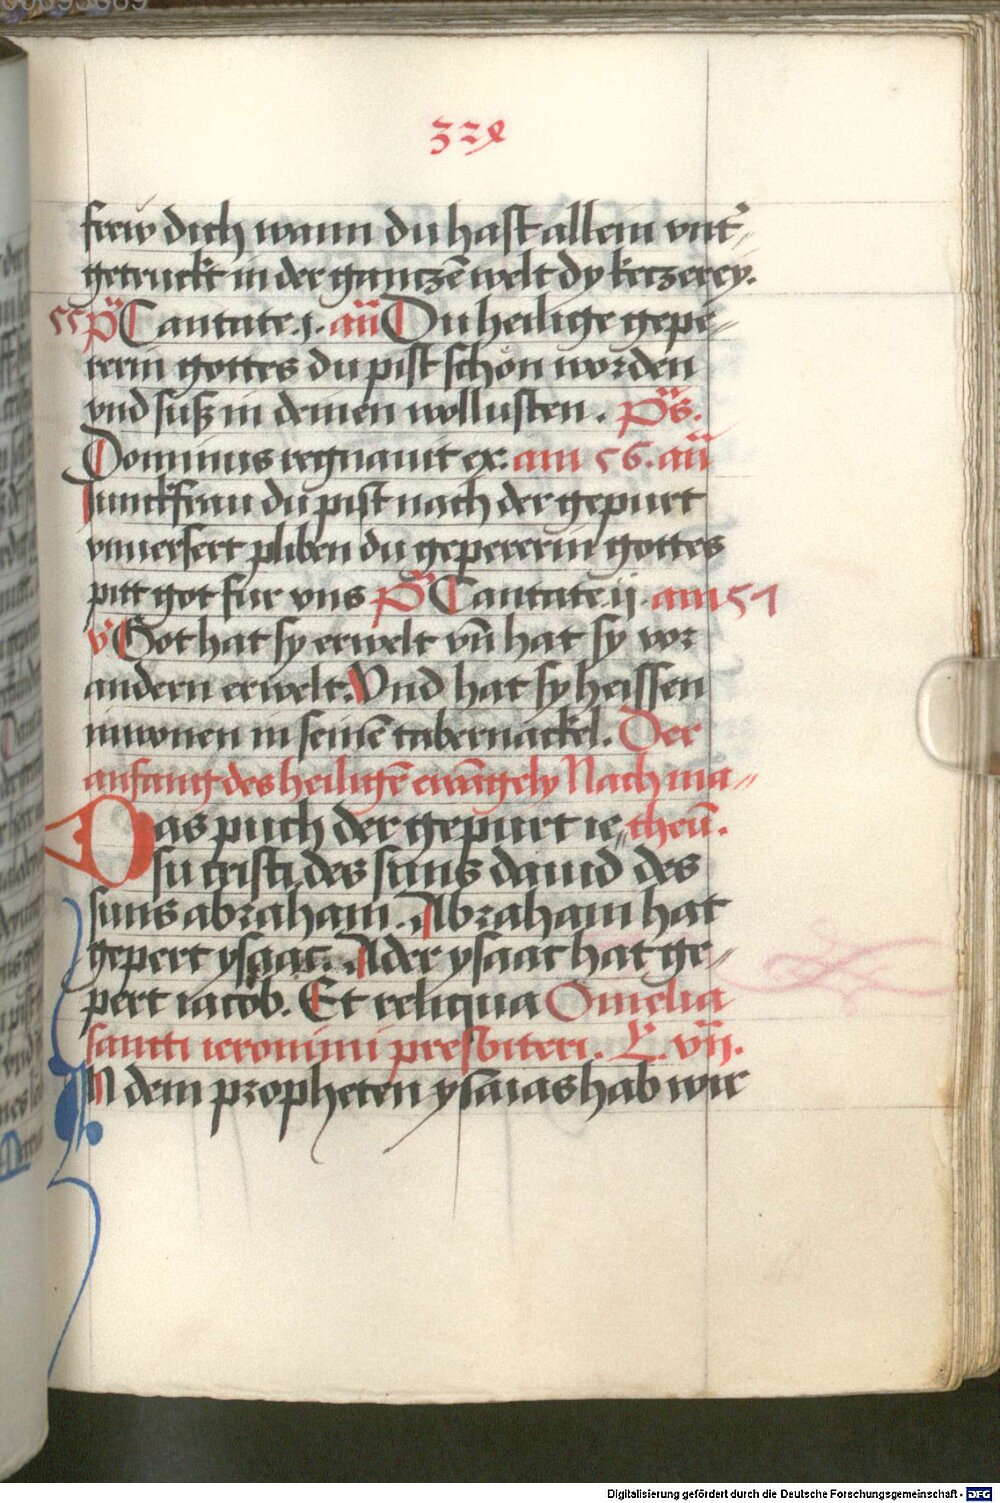 324
frew dich wann du hast allein vnt᷑-
getruckt in der gantzē welt dy keczerey.
55 p̈s Cantate .j. an̄ Du heilige gepe-
rerin gottes du pist schön worden
vnd suß in deinen wollusten. p̈s.
Dominus regnauit ex: am 56. an̄
Junckfrau du pist nach der gepurt
vnuersert pliben du gepererin gottes
pitt got fur vns p̈s Cantate ij. am 57
v᷑ Got hat sy erwelt vn̄ hat sy vor
andern erwelt. Vnd hat sy heissen
inwonen in seinē tabernackel. Der
anfang des heiligē ewāgely Nach ma-
Das puch der gepurt ie- theū.
su cristi des suns dauid des
suns abraham. Abraham hat
gepert ysaac. Ader ysaac hat ge-
pert iacob. Et reliqua Omelia
sancti ieronimi presbiteri. L. vij.
IN dem propheten ysaias hab wir
Digitalisierung gefördert durch die Deutsche Forschungsgemeinschaft - DFG